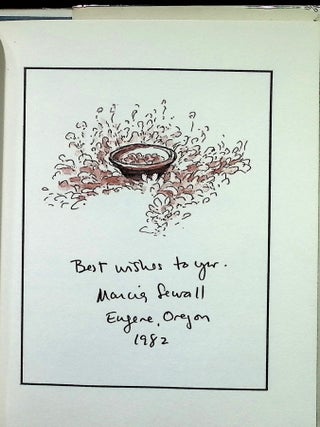 Best wishes to you.
Marcia Sewall
Eugene, Oregon
1982